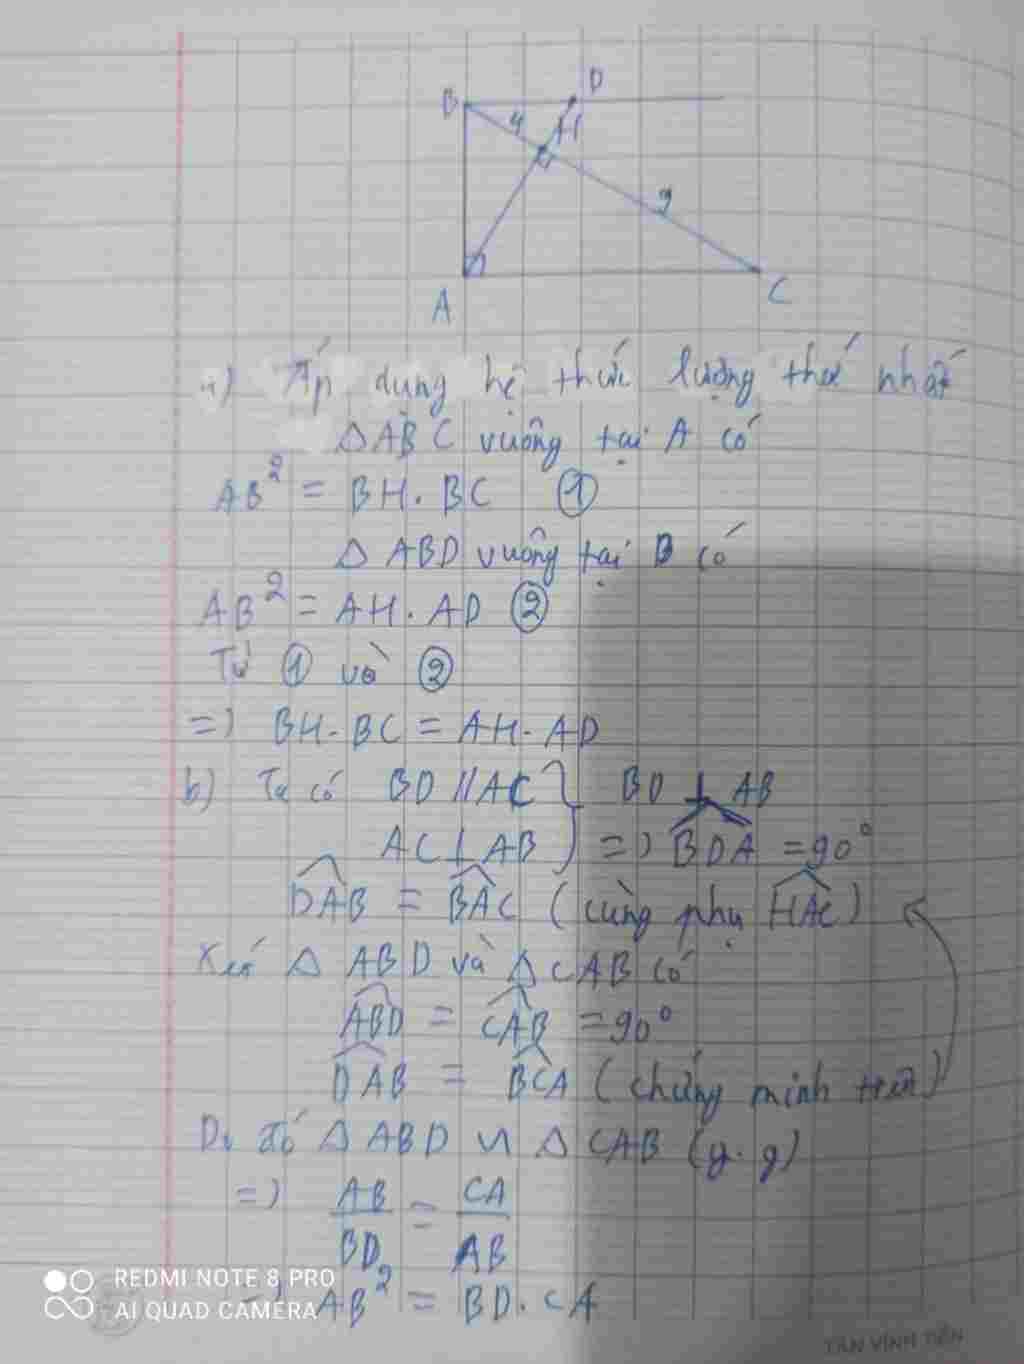 B
D
4
H
9
A
C
a) Áp dụng hệ thức lượng thứ nhất
△ABC vuông tại A có
AB² = BH. BC ①
△ ABD vuông tại B có
AB² = AH. AD ②
Từ ① và ②
=) BH. BC = AH. AD
b) Ta có BD // AC } BD ⊥ AB
AC ⊥ AB } =) BDA = 90°
DAB = BAC (cùng phụ HAC)
Xét △ ABD và △CAB có
ABD = CAB = 90°
DAB = BCA (chứng minh trên)
Do đó △ ABD ᔕ △ CAB (g.g)
=) AB/BD = CA/AB
=) AB² = BD. CA
REDMI NOTE 8 PRO
AI QUAD CAMERA
TÂN VĨNH TIẾN